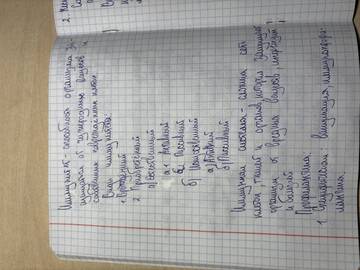 Иммунитет - способность организма за-
щищаться от чужеродных веществ и
собственных переродившихся клеток
Виды иммунитета:
1 Врожденный
2. Приобретённый
а) Естественный
а.1 Активный
а.2 Пассивный
б) Искусственный
а) Активный
б) Пассивный
Иммунная система - сложная сеть
клеток, тканей и органов, которая защищает
организм от вредных веществ, инфекций
и болезней
Профилактика
1. Специфическая вакцинация, иммунопрофи-
лактика.
2.